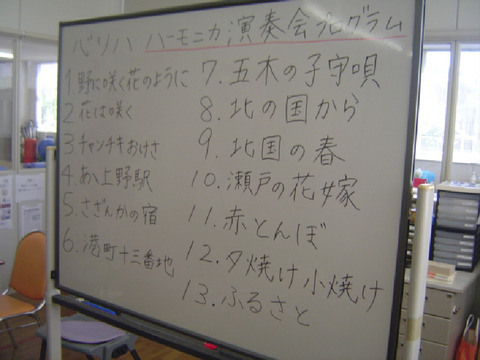 バリハ ハーモニカ演奏会プログラム
1 野に咲く花のように
2 花は咲く
3 チャンチキおけさ
4. あゝ上野駅
5. さざんかの宿
6. 港町十三番地
7. 五木の子守唄
8. 北の国から
9. 北国の春
10. 瀬戸の花嫁
11. 赤とんぼ
12. 夕焼け小焼け
13. ふるさと